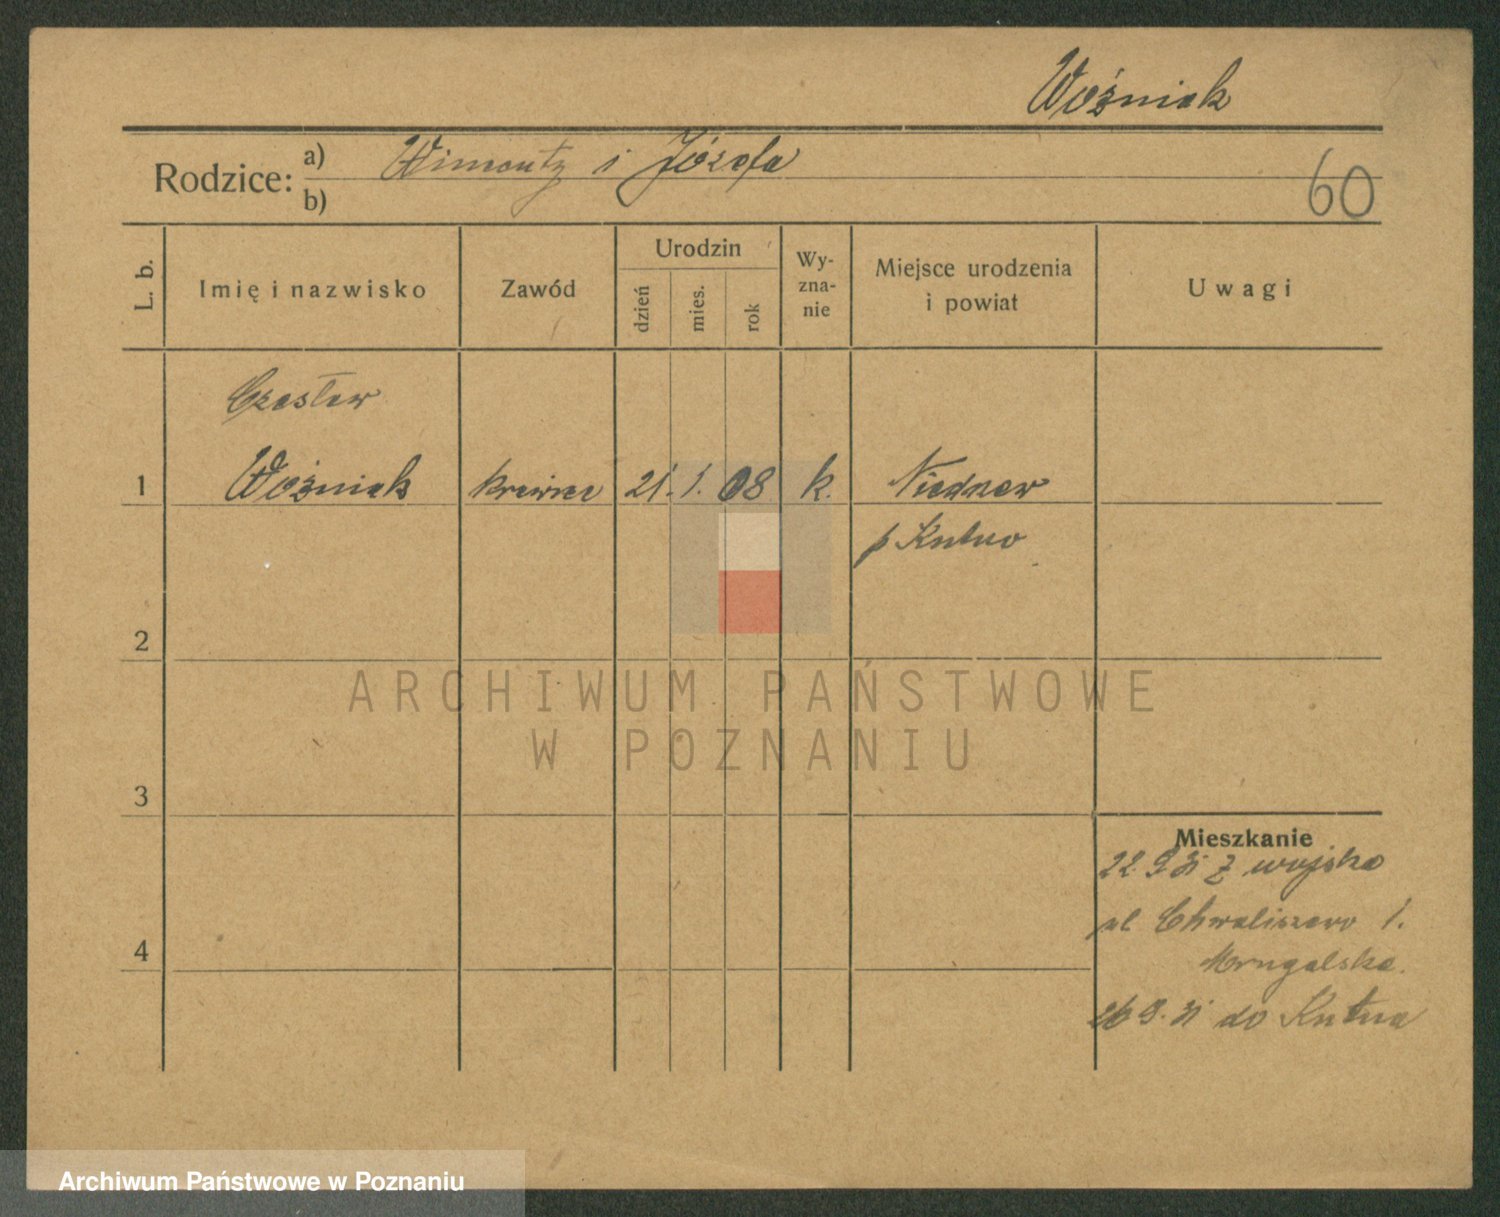 Woźniak
Rodzice:
a) i Józefa
b)
60
L. b.
Imię i nazwisko
Zawód
Urodzin
dzień
mies.
rok
Wy-
zna-
nie
Miejsce urodzenia
i powiat
Uwagi
Czesław
1 Woźniak krawiec 21. 1. 08 k.
p Kutno
2
ARCHIWUM PAŃSTWOWE
W POZNANIU
3
Mieszkanie
22 9 31 z wojska
ul Chwaliszewo 1.
4
26 9. 31 do Kutna
Archiwum Państwowe w Poznaniu